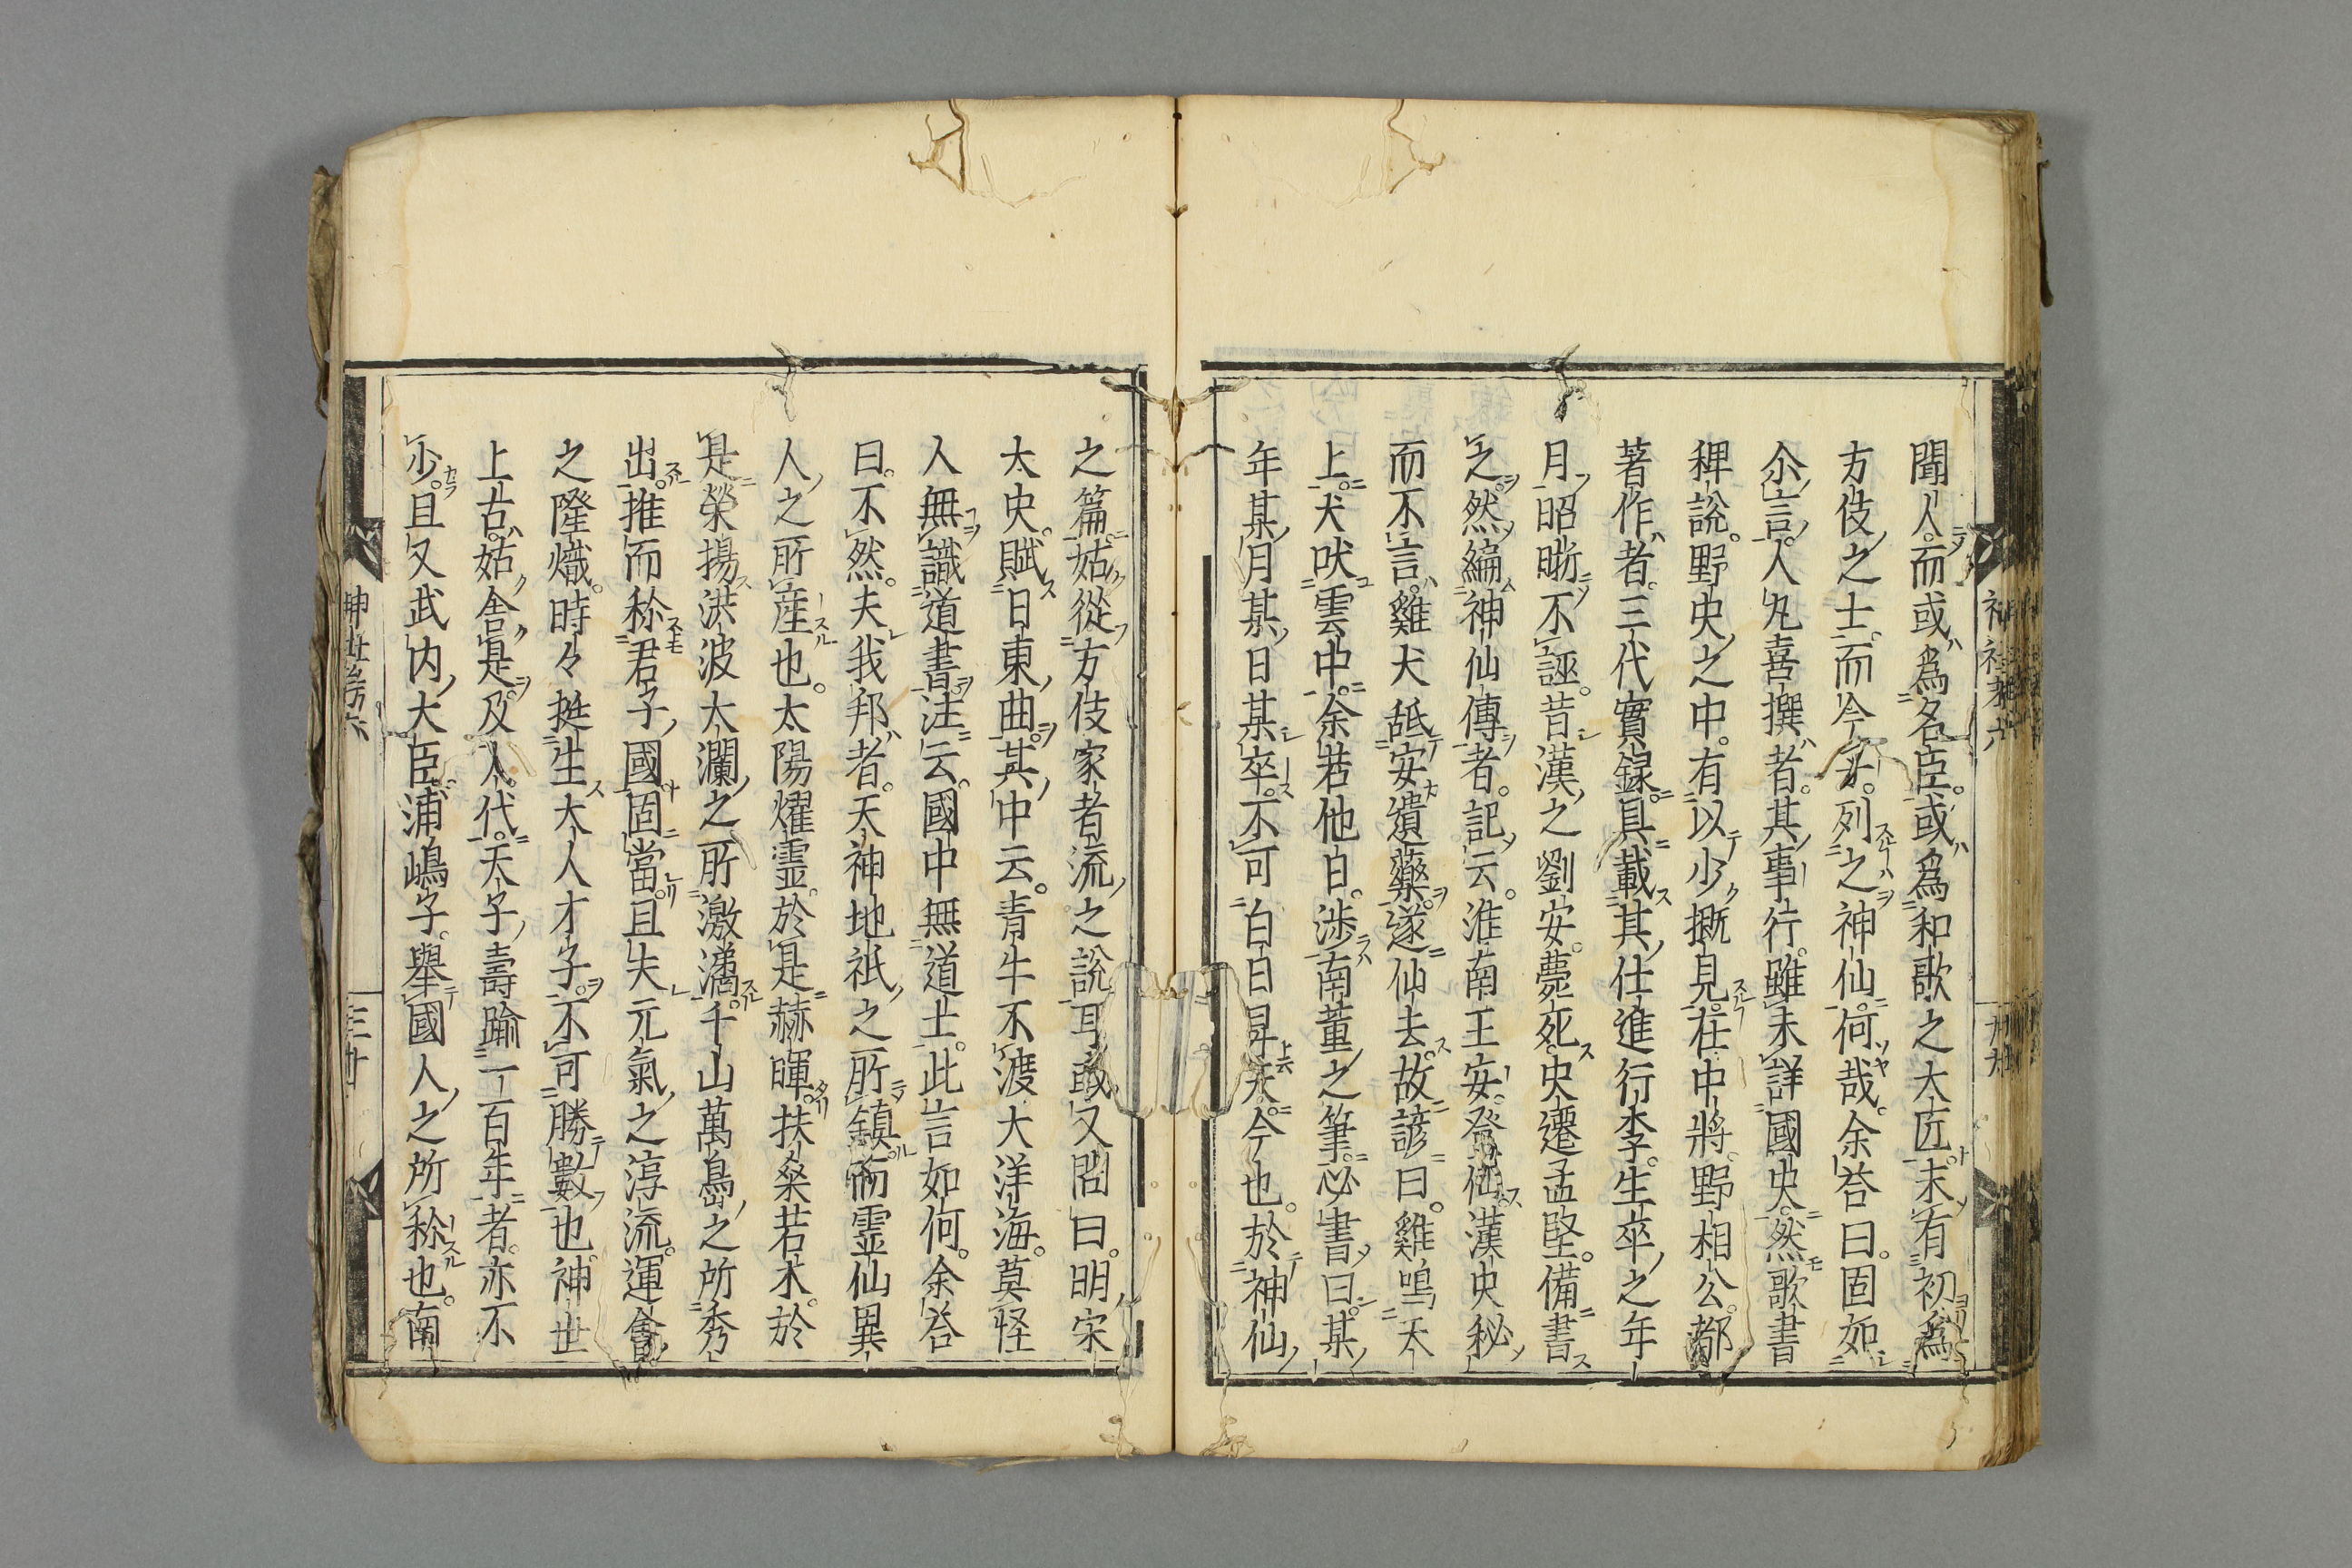 聞人。而或爲名臣。或爲和歌之大匠。未有初爲
方伎之士。而今子。列之神仙。何哉。余荅曰。固如
尒言。人凡喜撰者。其事行。雖未詳國史。然歌書
稗說。野史之中。有以少槪見。在中將。野相公。都
著作者。三代實錄。具載其仕進行李。生卒之年
月。昭晰不誣。昔漢之劉安。薨死。史遷孟堅。備書
之。然編神仙傳者。記云。淮南王安。登仙。漢史秘
而不言。雞犬舐安遺藥。遂仙去。故諺曰。雞鳴天
上。犬吠雲中。余若他日。涉南董之筆。必書曰。某
年某月某日某卒。不可白日昇天。今也。於神仙
之篇。姑從方伎家者流之說耳。或又問曰。明宋
太史。賦日東曲。其中云。青牛不渡大洋海。莫怪
人無識道書。注云。國中無道士。此言如何。余荅
曰。不然。夫我邦者。天神地祇之所鎮。而霊仙異
人之所産也。太陽燿霊。於是赫暉。扶桒若木。於
是榮揚。洪波太瀾之所激潏。千山萬島之所秀
出。推而称君子國。固當。且夫元氣之淳流。運會
之隆熾。時々挺生大人才子。不可勝數也。神世
上古。姑舍是。及人代。天子壽踰一百年者。亦不
少。且又武内大臣。浦嶋子。舉國人之所称也。南
神社考六
三十